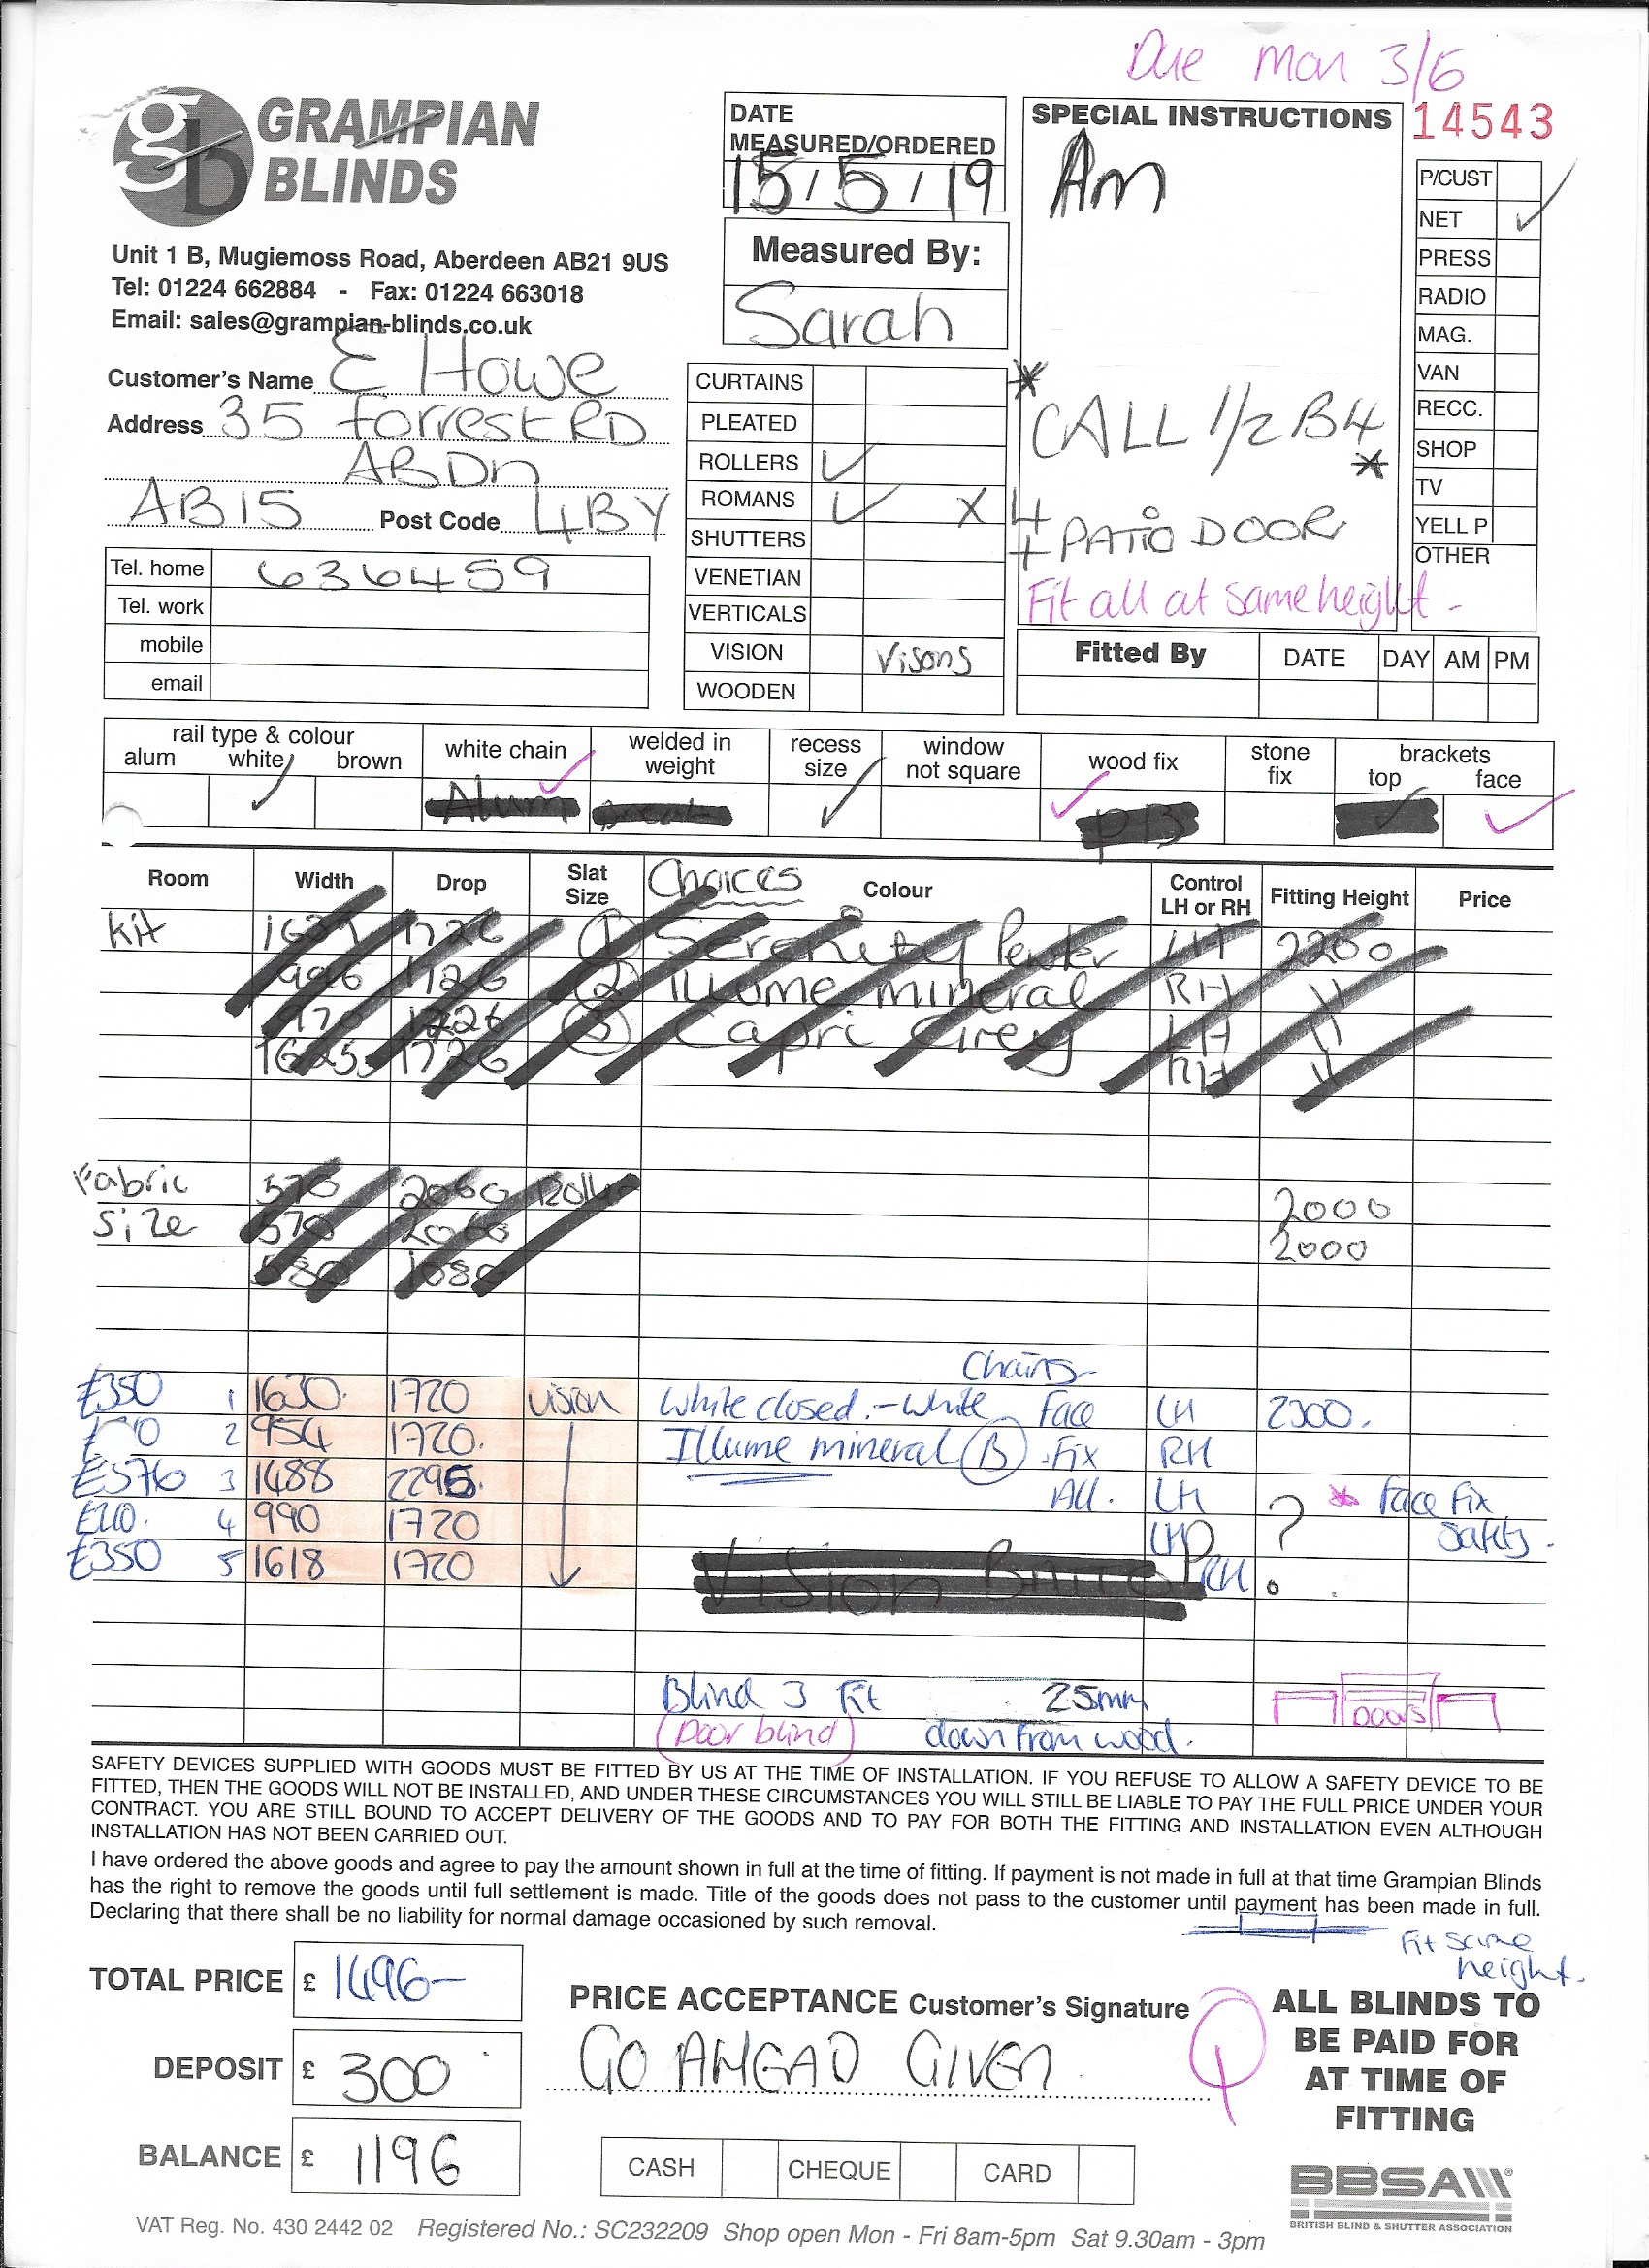 Due Mon 3/6
GRAMPIAN
BLINDS
gb
Unit 1 B, Mugiemoss Road, Aberdeen AB21 9US
Tel: 01224 662884 - Fax: 01224 663018
Email: sales@grampian-blinds.co.uk
DATE
MEASURED/ORDERED
15/5/19
Measured By:
Sarah
SPECIAL INSTRUCTIONS
14543
Am
* CALL 1/2 B4 *
+ PATIO DOOR
Fit all at same height -
P/CUST
NET ✓
PRESS
RADIO
MAG.
VAN
RECC.
SHOP
TV
YELL P
OTHER
Customer's Name E Howe
Address 35 Forrest RD
ABDn
AB15 Post Code 4BY
Tel. home 636459
Tel. work
mobile
email
CURTAINS
PLEATED
ROLLERS ✓
ROMANS ✓ X 4
SHUTTERS
VENETIAN
VERTICALS
VISION Visons
WOODEN
Fitted By DATE DAY AM PM
rail type & colour
alum white ✓ brown
white chain ✓
Alum
welded in
weight
recess
size ✓
window
not square
wood fix ✓
PB
stone
fix
brackets
top face ✓
Room Width Drop Slat Size Choices Colour Control LH or RH Fitting Height Price
Kit 1726 (1) Serenity Pewter LH 2200
996 1726 (2) Illume mineral RH 11
(3) Capri Grey LH 11
1625 1726 RH 11
Fabric 570 2060 Roller 2000
Size 570 2060 2000
Chains
£350 1 1630 1720 Vision White closed - White Face LH 2300.
2 954 1720. Illume mineral (B) Fix RH
£576 3 1488 2295. All. LH ? * Face Fix
£210. 4 990 1720 LH Safety.
£350 5 1618 1720 RH
Blind 3 Fit 25mm
(Door blind) down from wood.
Doors
SAFETY DEVICES SUPPLIED WITH GOODS MUST BE FITTED BY US AT THE TIME OF INSTALLATION. IF YOU REFUSE TO ALLOW A SAFETY DEVICE TO BE
FITTED, THEN THE GOODS WILL NOT BE INSTALLED, AND UNDER THESE CIRCUMSTANCES YOU WILL STILL BE LIABLE TO PAY THE FULL PRICE UNDER YOUR
CONTRACT. YOU ARE STILL BOUND TO ACCEPT DELIVERY OF THE GOODS AND TO PAY FOR BOTH THE FITTING AND INSTALLATION EVEN ALTHOUGH
INSTALLATION HAS NOT BEEN CARRIED OUT.
I have ordered the above goods and agree to pay the amount shown in full at the time of fitting. If payment is not made in full at that time Grampian Blinds
has the right to remove the goods until full settlement is made. Title of the goods does not pass to the customer until payment has been made in full.
Declaring that there shall be no liability for normal damage occasioned by such removal.
Fit same
height.
TOTAL PRICE £ 1496-
DEPOSIT £ 300
BALANCE £ 1196
PRICE ACCEPTANCE Customer's Signature
GO AHEAD GIVEN
CASH CHEQUE CARD
ALL BLINDS TO
BE PAID FOR
AT TIME OF
FITTING
BBSA
BRITISH BLIND & SHUTTER ASSOCIATION
VAT Reg. No. 430 2442 02 Registered No.: SC232209 Shop open Mon - Fri 8am-5pm Sat 9.30am - 3pm